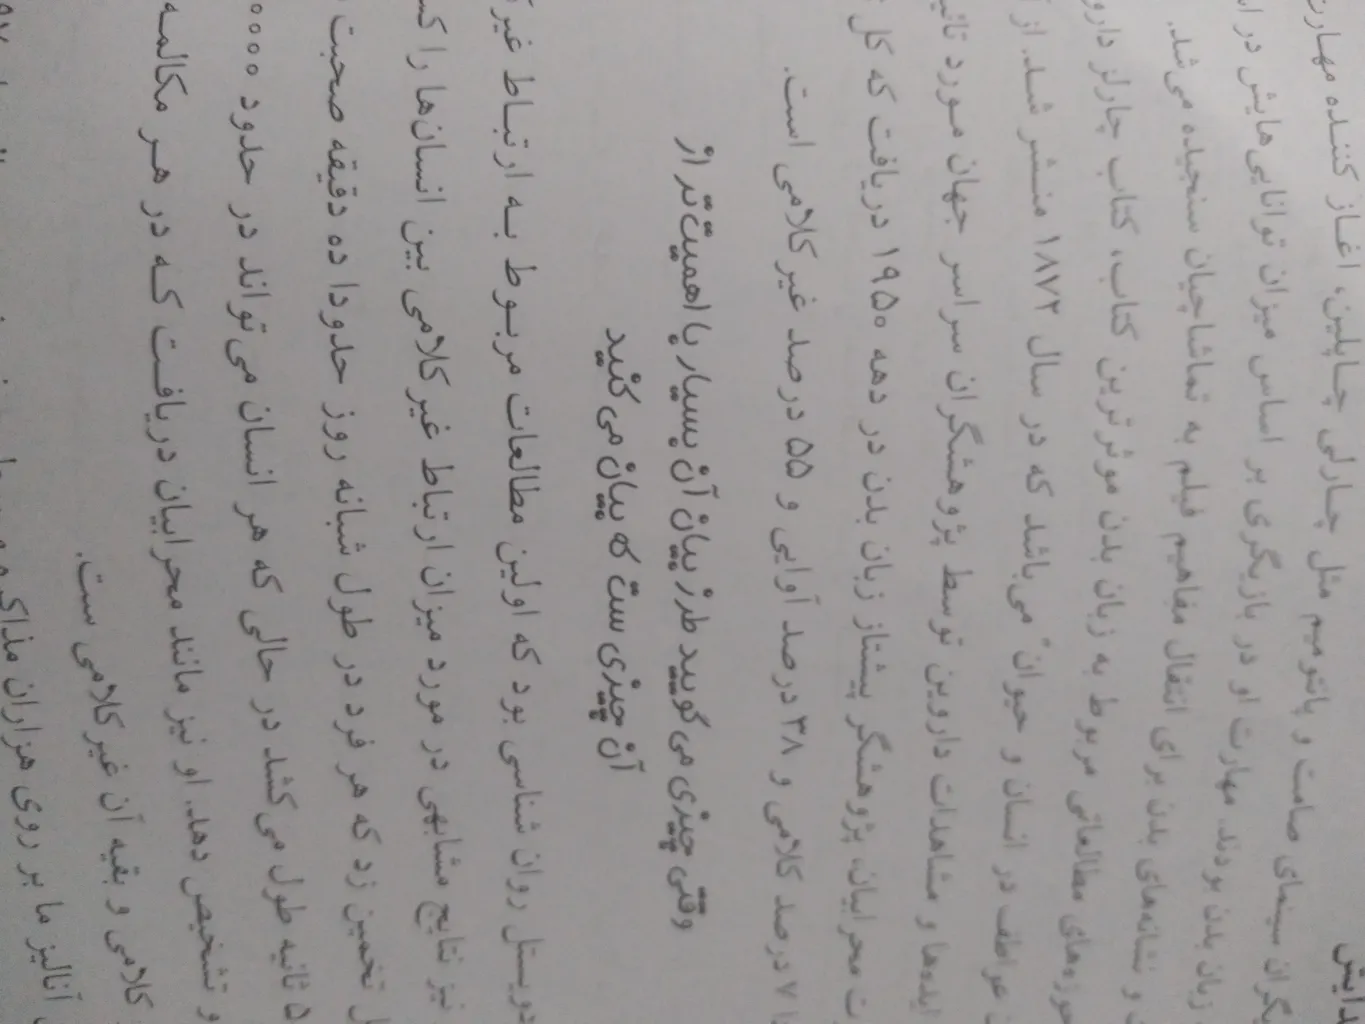 دایش
یگران سینمای صامت و پانتومیم مثل چارلی چاپلین، آغاز کننده مهارت
زبان بدن بودند. مهارت او در بازیگری بر اساس میزان توانایی‌هایش در
و نشانه‌های بدن برای انتقال مفاهیم فیلم به تماشاچیان سنجیده می‌شد.
حوزه‌های مطالعاتی مربوط به زبان بدن موثرترین کتاب، کتاب چارلز دارو
عواطف در انسان و حیوان" می‌باشد که در سال ۱۸۷۲ منتشر شد. از
ایده‌ها و مشاهدات داروین توسط پژوهشگران سراسر جهان مورد تائی
ت محرابیان، پژوهشگر پیشتاز زبان بدن در دهه ۱۹۵۰ دریافت که کل
۷ درصد کلامی و ۳۸ درصد آوایی و ۵۵ درصد غیر کلامی است.
وقتی چیزی می‌گویید طرز بیان آن بسیار با اهمیت‌تر از
آن چیزی ست که بیان می‌کنید
دویستل روان شناسی بود که اولین مطالعات مربوط به ارتباط غیر
نیز نتایج مشابهی در مورد میزان ارتباط غیر کلامی بین انسان‌ها را ک
ل تخمین زد که هر فرد در طول شبانه روز حدودا ده دقیقه صحبت
۵ ثانیه طول می‌کشد در حالی که هر انسان می‌تواند در حدود ۰۰۰۰
و تشخیص دهد. او نیز مانند محرابیان دریافت که در هر مکالمه
کلامی و بقیه آن غیر کلامی ست.
آنالیز ما بر روی هزاران مذاکره